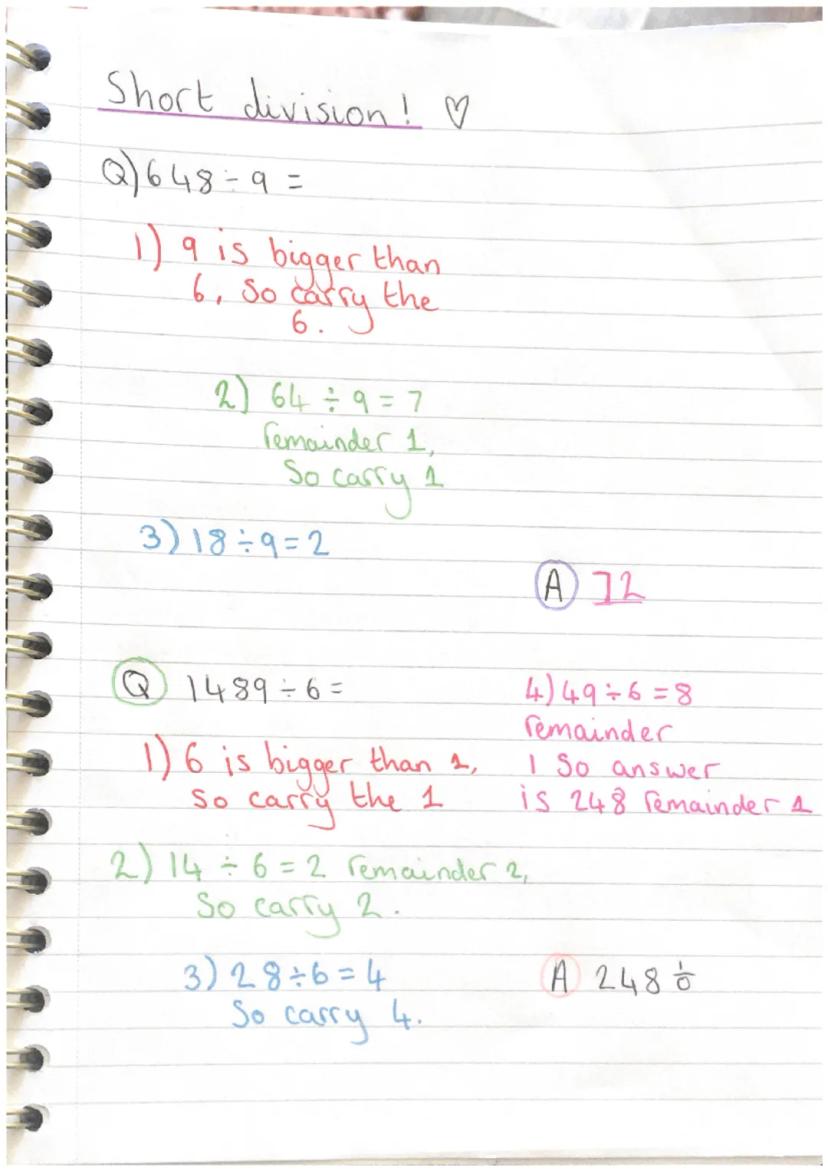 Short division! ♡
Q) 648 ÷ 9 =
1) 9 is bigger than
6, so carry the
6.
2) 64 ÷ 9 = 7
remainder 1,
So carry 1
3) 18 ÷ 9 = 2
A 72
Q 1489 ÷ 6 =
1) 6 is bigger than 1,
so carry the 1
2) 14 ÷ 6 = 2 remainder 2,
So carry 2.
3) 28 ÷ 6 = 4
So carry 4.
4) 49 ÷ 6 = 8
remainder
1 So answer
is 248 remainder 1
A 248